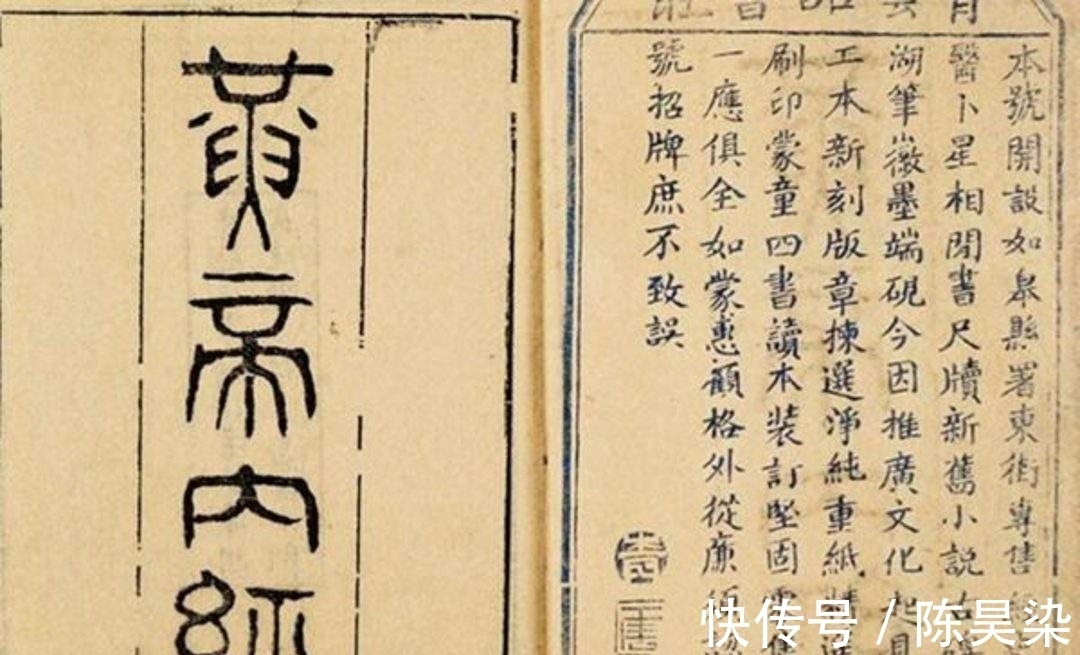 黃帝內經
本號開設如皋縣署東街專售
醫卜星相閒書尺牘新舊小説
湖筆徽墨端硯今因推廣文化起見
工本新刻版章揀選淨純重紙精
刷印蒙童四書讀本裝訂堅固
一應俱全如蒙惠顧格外從廉
號招牌庶不致誤
快传号 / 陈昊染